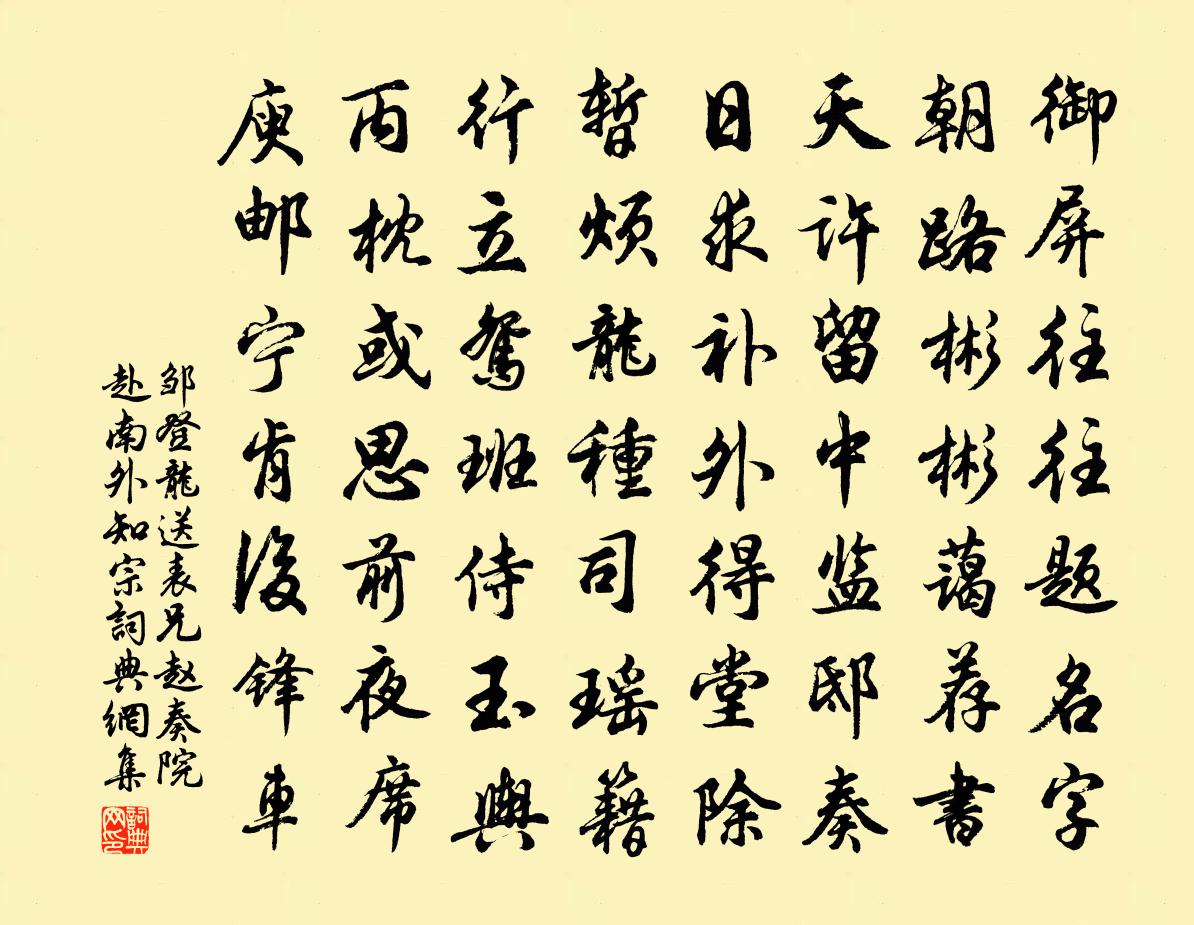 御屏往往题名字
朝路彬彬蔼荐書
天许留中监邸奏
日求补外得堂除
暂烦龍種司瑶籍
行立鸳班侍玉輿
丙枕或思前夜席
庾邮宁肯後锋車
邹登龍送表兄赵奏院
赴南外知宗詞典網集
詞典网印